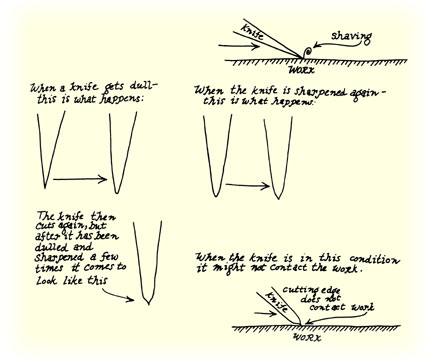 knife
shaving
WORK
When a knife gets dull—
this is what happens:
When the knife is sharpened again—
this is what happens:
The knife then
cuts again, but
after it has been
dulled and
sharpened a few
times it comes to
look like this
When the knife is in this condition
it might not contact the work.
cutting edge
does not
contact work
knife
WORK